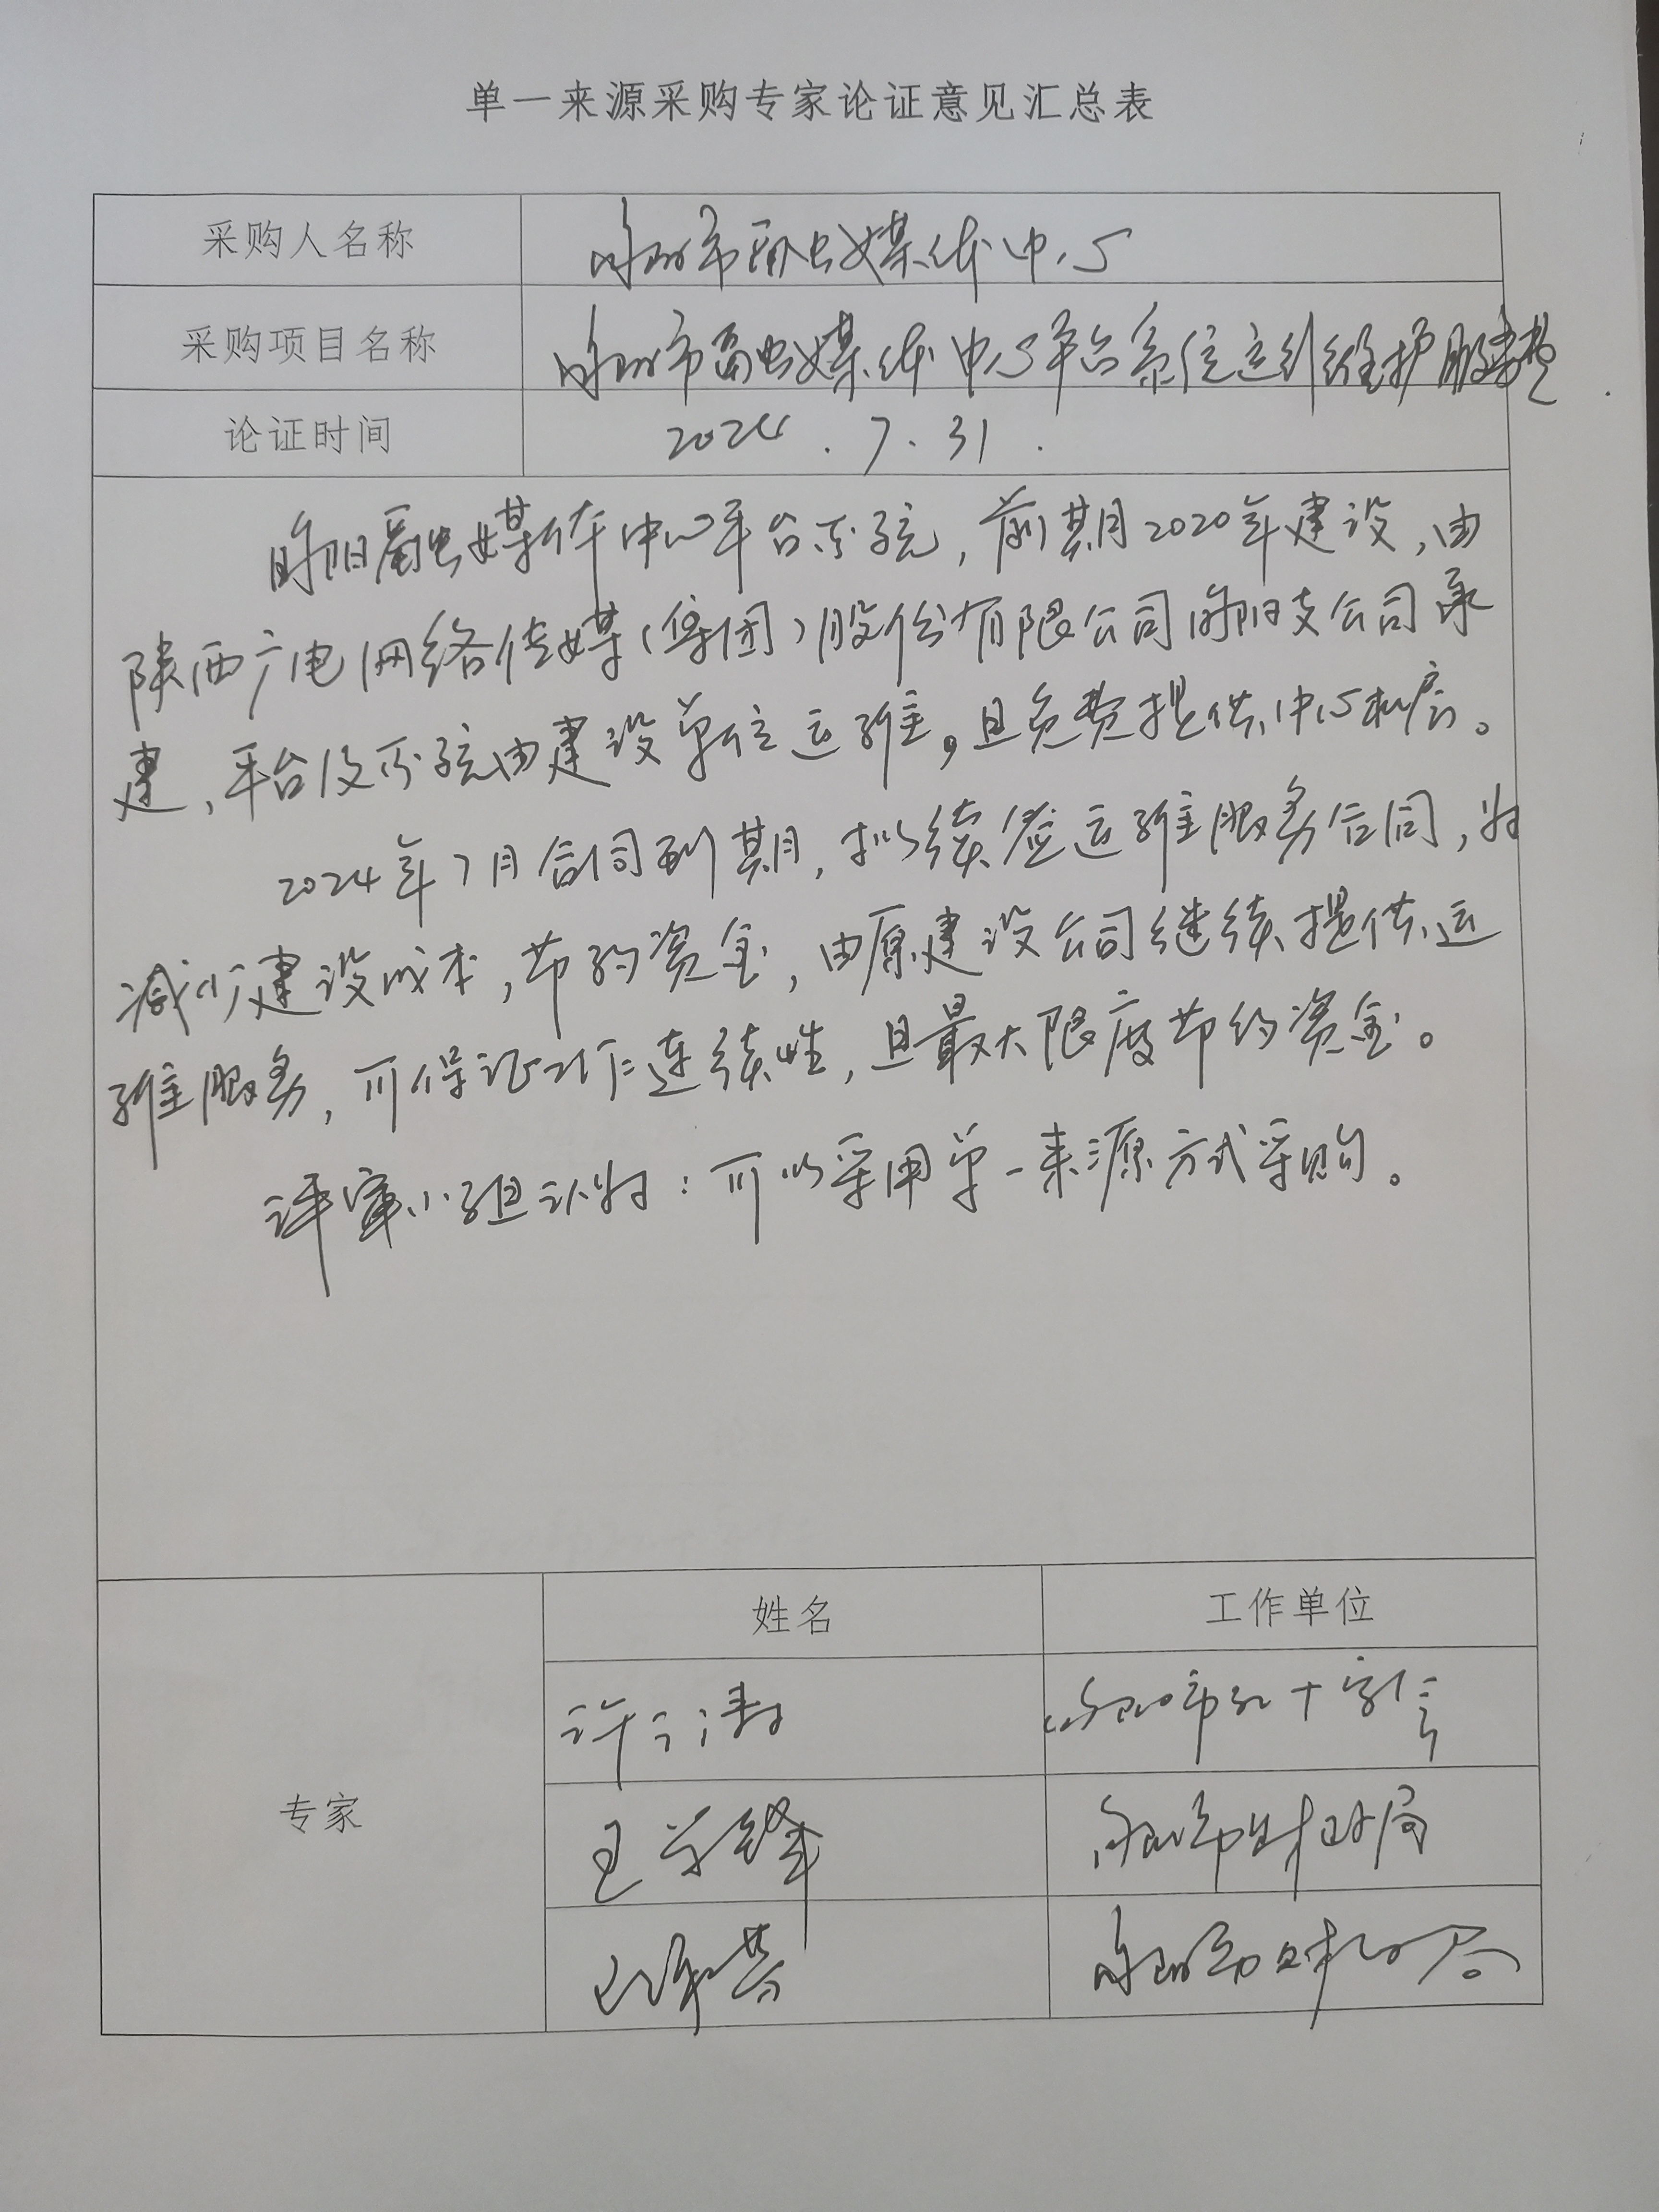 单一来源采购专家论证意见汇总表
采购人名称
旬阳市融媒体中心
采购项目名称
旬阳市融媒体中心平台系统运行维护服务费
论证时间
2024.7.31.
旬阳融媒体中心平台系统,前期2020年建设,由
陕西广电网络传媒(集团)股份有限公司旬阳支公司承
建,平台及系统由建设单位运维,且免费提供中心机房。
2024年7月合同到期,拟续签运维服务合同,为
减少建设成本,节约资金,由原建设公司继续提供运
维服务,可保证工作连续性,且最大限度节约资金。
评审小组认为:可以采用单一来源方式采购。
专家
姓名
工作单位
旬阳市红十字会
王学锋
旬阳市财政局
旬阳市财政局